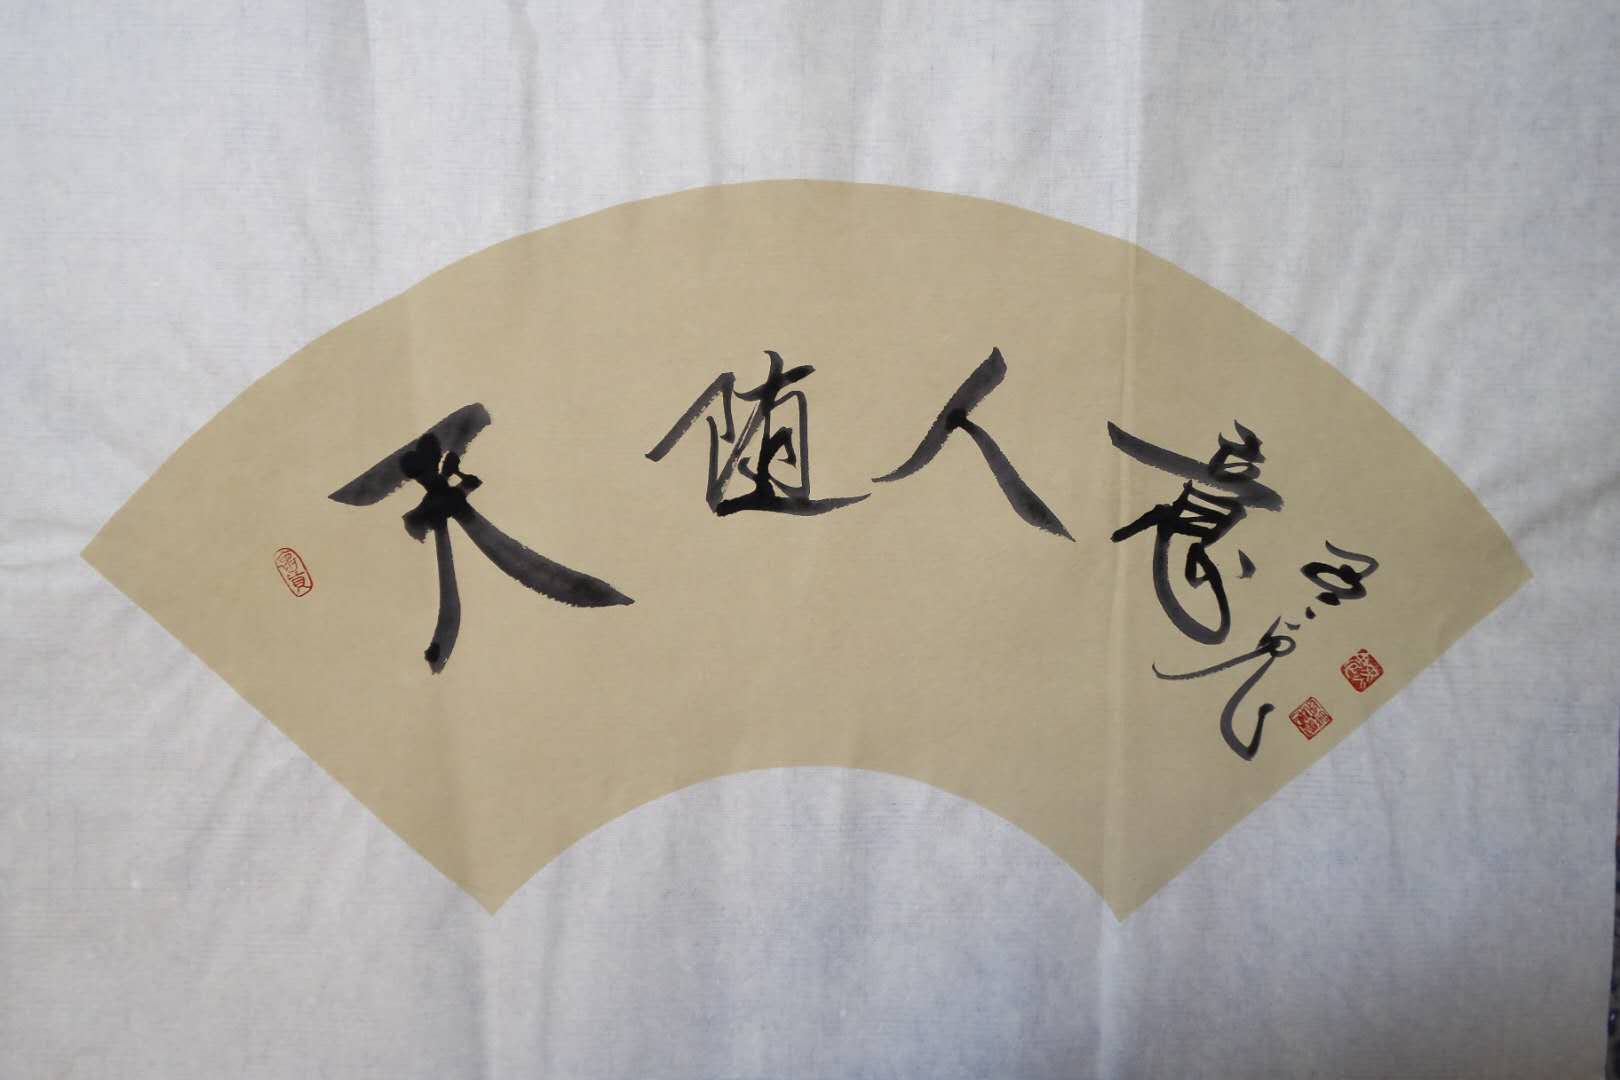 天随人意